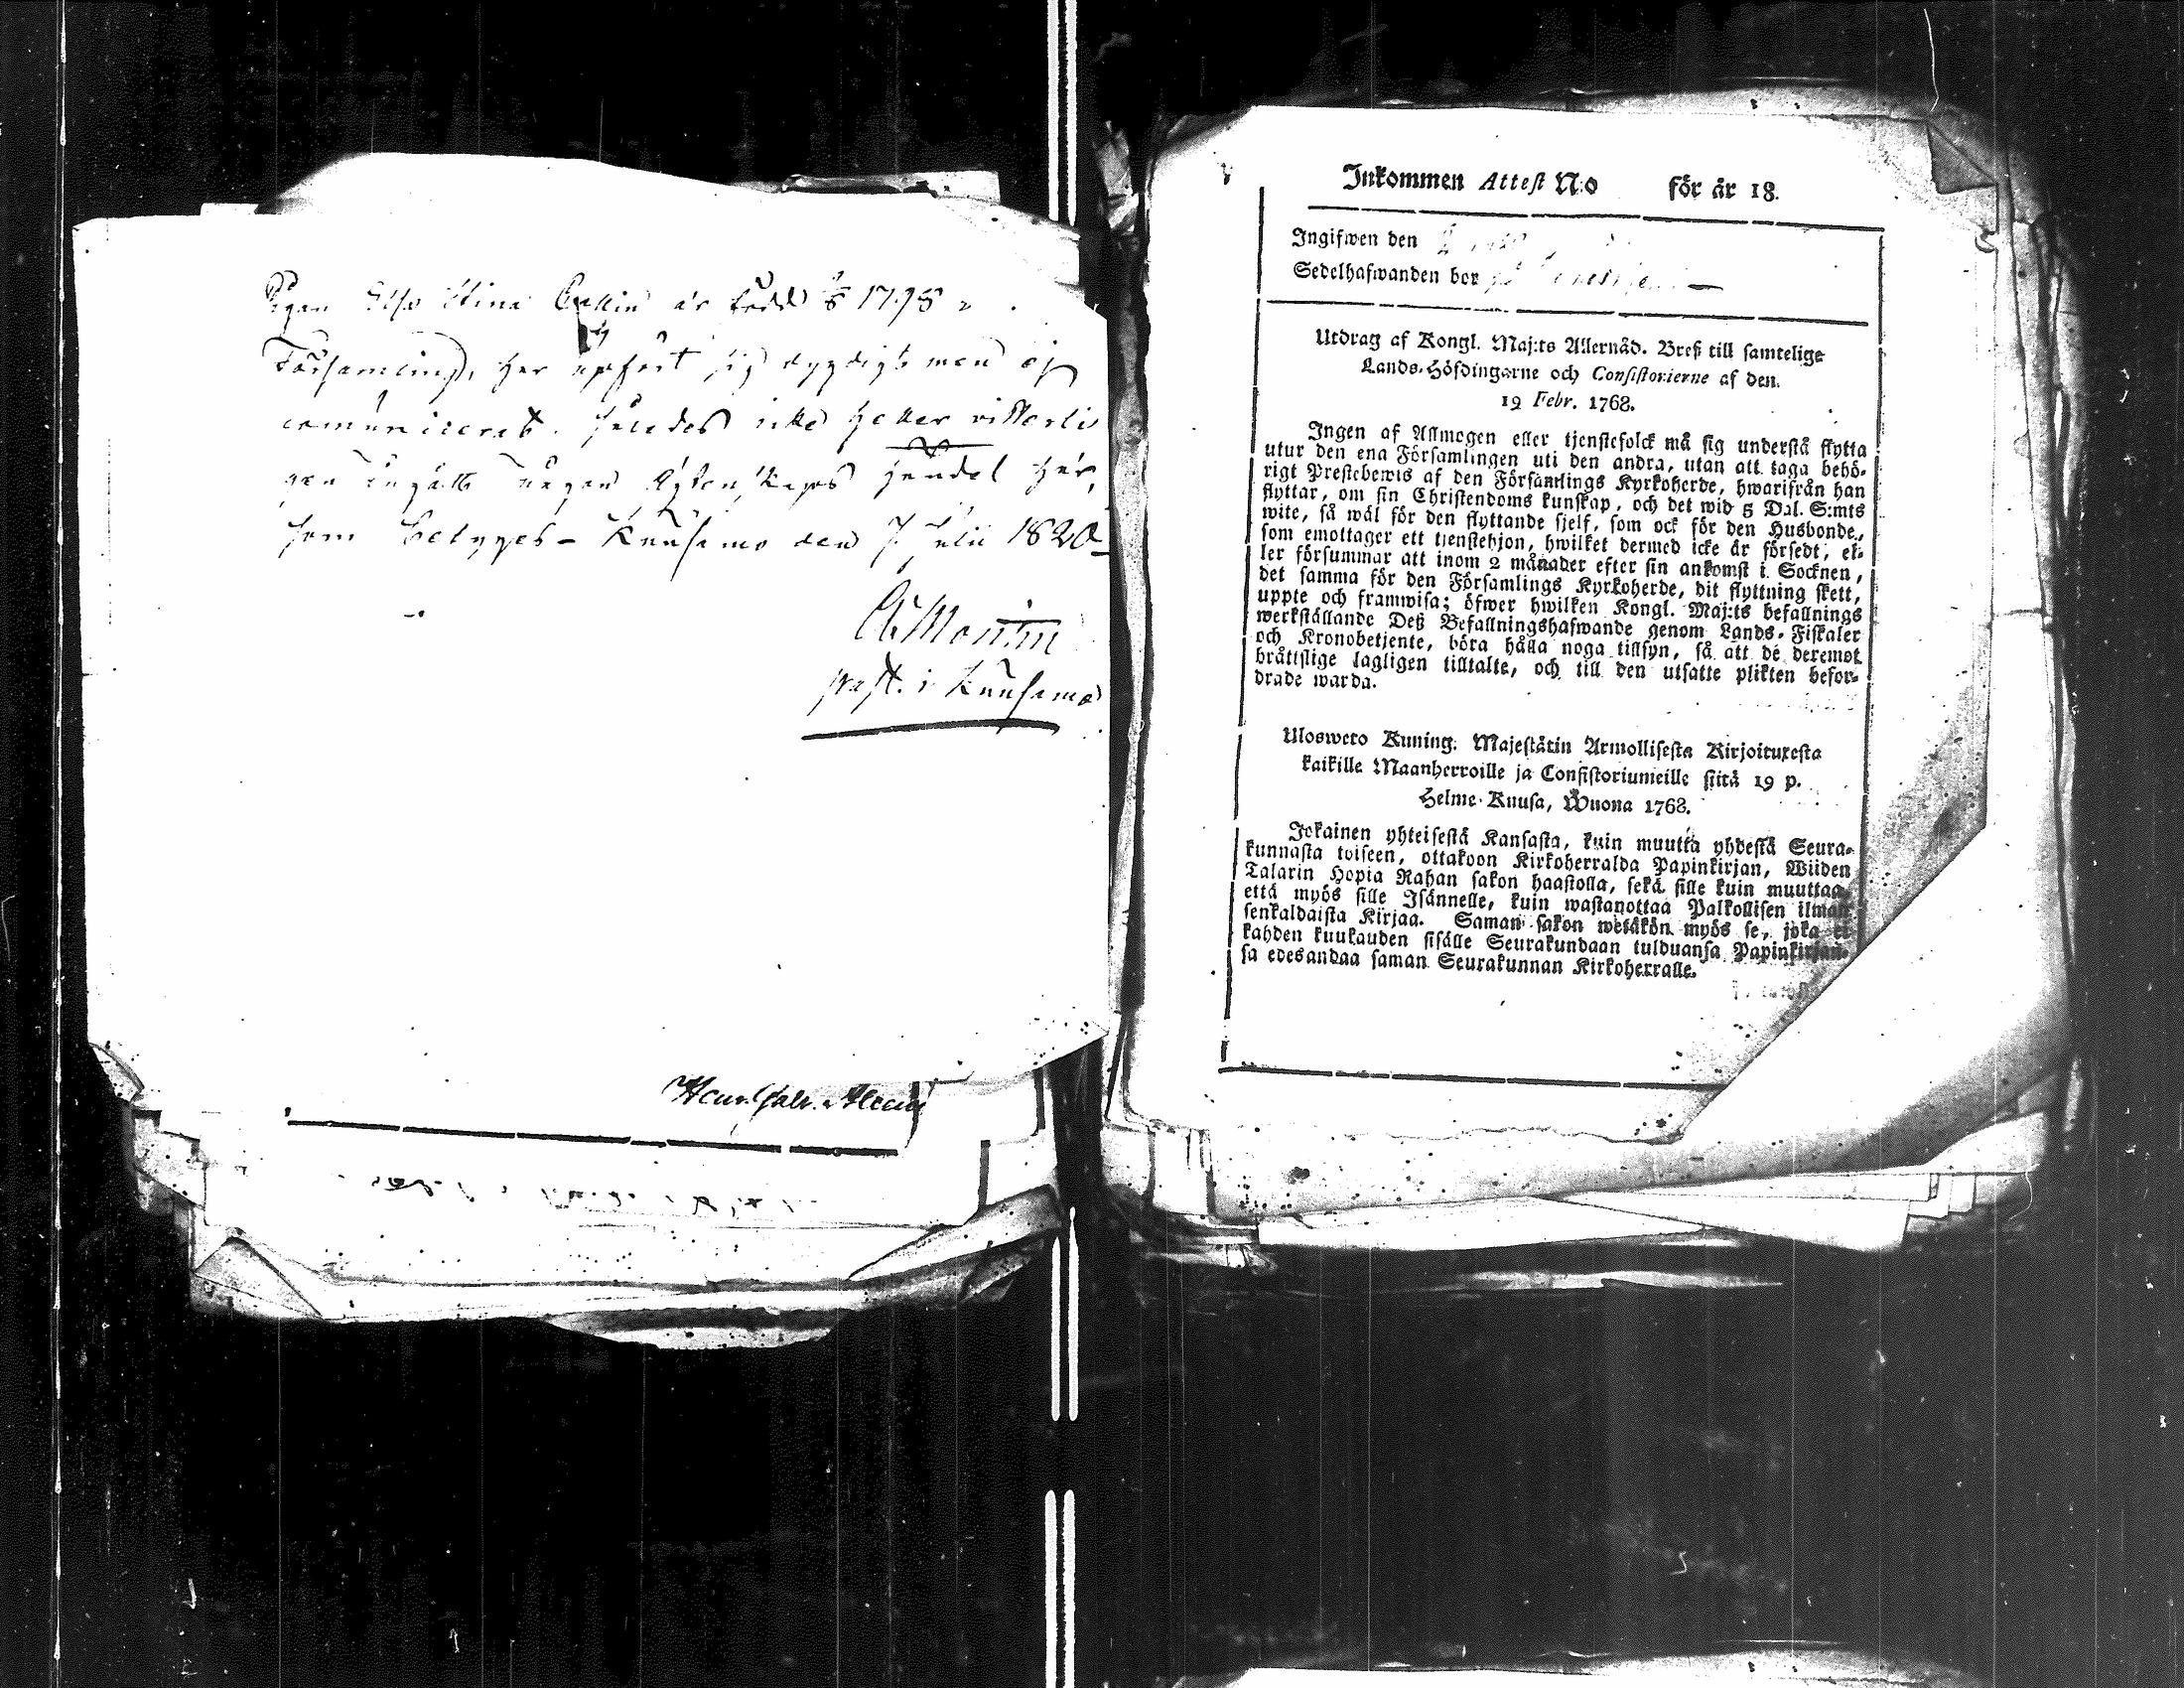 Pigan Elsa Stina är född 1798
Församling, har uppfört sig dygdigt men ej
comunicerat. således icke heller vitterli
gen ingått någon Ägtenskaps handel här,
som betyges - Kuusamo den 7 Julii 1820
past. i Kuusamo
Inkommen Attest No för år 18.
Ingifwen den
Sedelhafwanden bor
Utdrag af Kongl. Maj:ts Allernåd. Bref till samtelige
Lands-Höfdingarne och Consistorierne af den.
19 Febr. 1768.
Ingen af Allmogen eller tjenstefolck må sig understå flytta
utur den ena Församlingen uti den andra, utan att taga behö-
rigt Prestebewis af den Församlings Kyrkoherde, hwarifrån han
flyttar, om sin Christendoms kunskap, och det wid 5 Dal. S:mts
wite, så wäl för den flyttande sjelf, som ock för den Husbonde,
som emottager ett tjenstehjon, hwilket dermed icke är försedt, el-
ler försummar att inom 2 månader efter sin ankomst i Socknen,
det samma för den Församlings Kyrkoherde, dit flyttning skett,
uppte och framwisa; öfwer hwilken Kongl. Maj:ts befallnings
werkställande Deß Befallningshafwande genom Lands-Fiskaler
och Kronobetjente, böra hålla noga tillsyn, så att de deremot
bråttslige lagligen tilltalte, och till den utsatte plikten befor-
drade warda.
Ulosweto Kuning. Majestätin Armollisesta Kirjoituxesta
kaikille Maanherroille ja Consistoriumeille siitä 19 p.
Helme-Kuusa, Wuona 1768.
Jokainen yhteisestä Kansasta, kuin muutta yhdestä Seura-
kunnasta toiseen, ottakoon Kirkoherralda Papinkirjan, Wiiden
Talarin Hopia Rahan sakon haastolla, sekä sille kuin muuttaa,
että myös sille Isännelle, kuin wastanottaa Palkollisen ilman
senkaldaista Kirjaa. Saman sakon wetäkön myös se, joka ei
kahden kuukauden sisälle Seurakundaan tulduansa Papinkirjan-
sa edesandaa saman Seurakunnan Kirkoherralle.